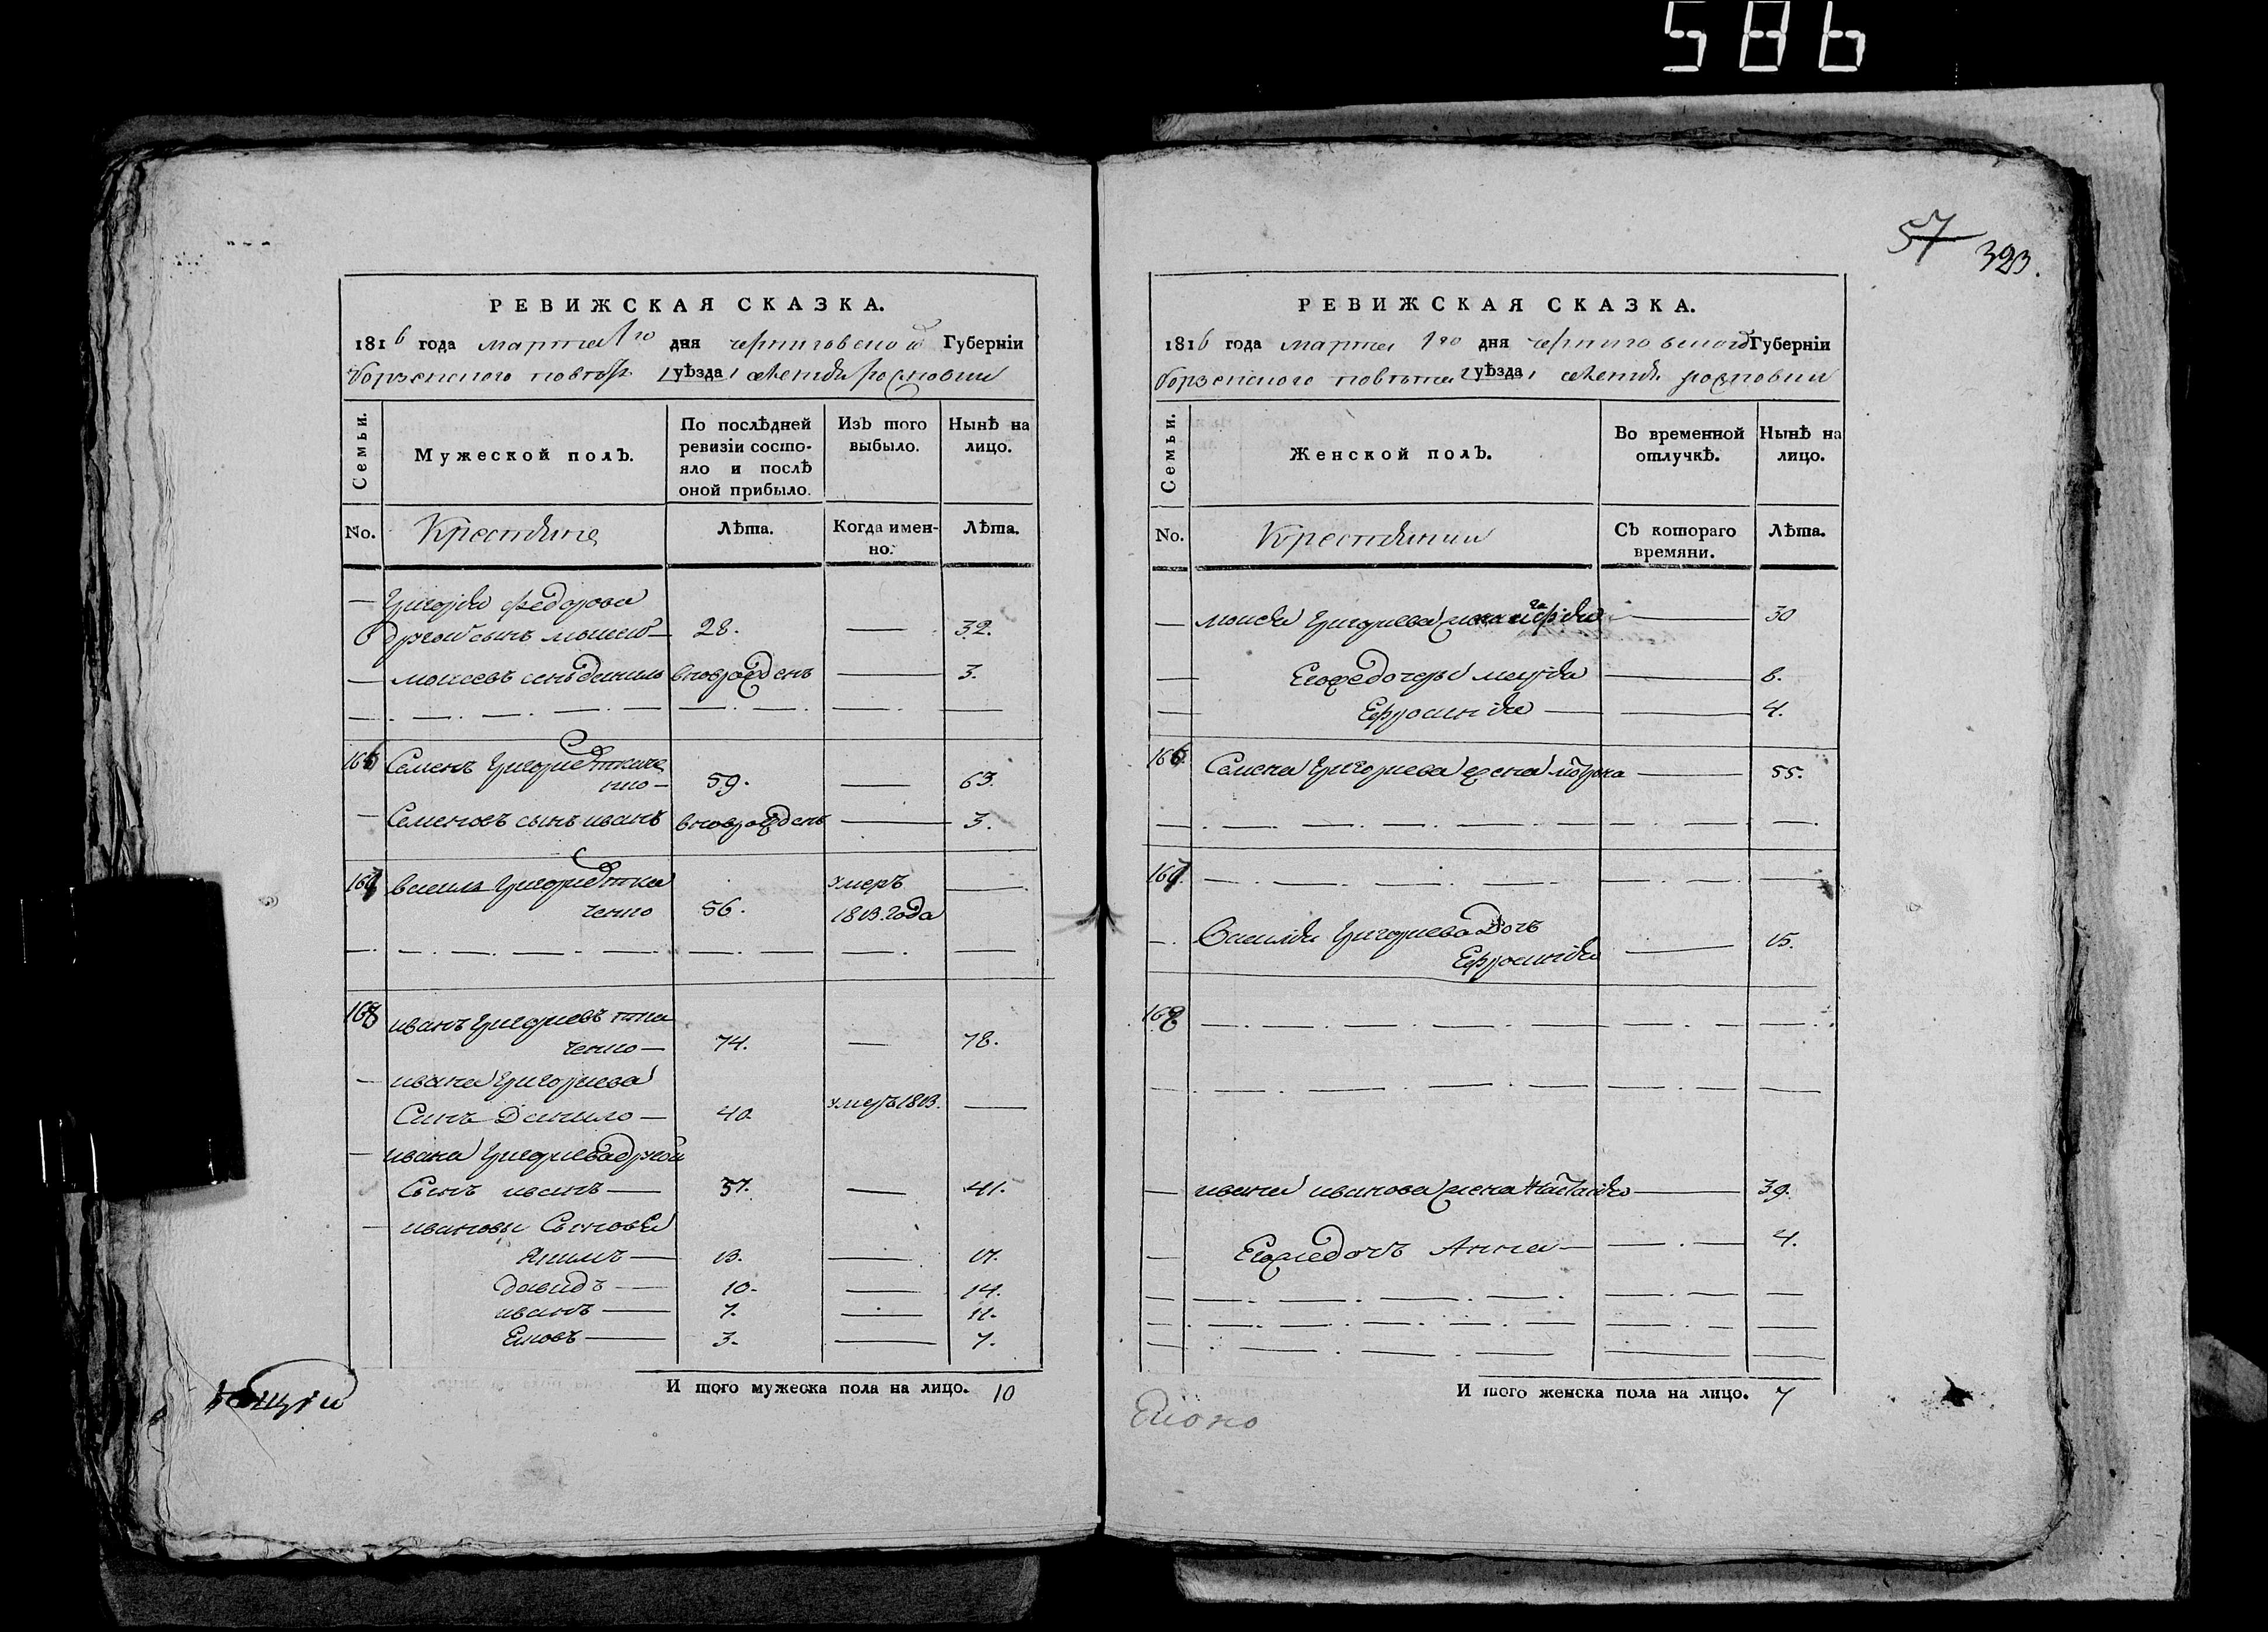 586
57 323.
РЕВИЖСКАЯ СКАЗКА.
1816 года марта 1го дня черниговской Губерніи
борзенского повѣта уѣзда
Семьи.
Мужеской полъ.
По послѣдней ревизіи состояло и послѣ оной прибыло.
Изъ того выбыло.
Нынѣ на лицо.
No. Крестяне Лѣта. Когда именно. Лѣта.
— Григория Федорова
другой сынъ моисей — 28. — 32.
— моисеевъ синъ данило вноврожденъ — 3.
166 Семенъ Григориев ткаче
нко — 59. — 63.
— Семеновъ сынъ иванъ вноврожденъ — 3.
167 василь Григориев тка
ченко 56. умеръ 1813. года —
168 иванъ Григориевъ тка
ченко — 74. — 78.
— ивана Григориева
Синъ Данило — 40. умеръ 1813. —
— ивана Григориева другой
Сынъ иванъ — 37. — 41.
— ивановы Сыновья
Якимъ — 13. — 17.
давидъ — 10. — 14.
иванъ — 7. — 11.
Яковъ — 3. — 7.
И того мужеска пола на лицо. 10
РЕВИЖСКАЯ СКАЗКА.
1816 года марта 1го дня черниговской Губерніи
борзенского повѣта уѣзда
Семьи.
Женской полъ.
Во временной отлучкѣ.
Нынѣ на лицо.
No. Крестянки Съ котораго времяни. Лѣта.
— моисея Григориева жена — 30
— Егожедочеры — 8.
— Ефросиния — — 4.
166 Семена Григориева жена — 55.
167.
— Василия Григориева Дочь
Ефросиния — 15.
168
— ивана иванова жена Настасия — 39.
— Егожедочь Анна — — 4.
И того женска пола на лицо. 7